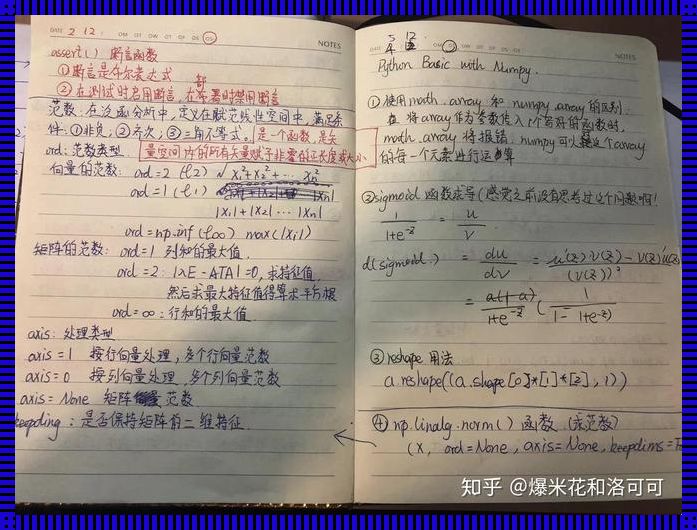 DATE 2 12 / OM OT OW OT OF OS OS
NOTES
assert() 断言函数
①断言是布尔表达式
部
②在测试时启用断言,在布署时禁用断言
范数:在泛函分析中,定义在赋范线性空间中,满足条
件:①非负;②齐次;③三角不等式。是一个函数,是矢
量空间内的所有矢量赋予非零的正长度或大小
ord:范数类型
向量的范数:ord=2 (ℓ2) √x₁²+x₂²+…xn²
ord=1 (ℓ1) |xn|
|x₁|+|x2|…|xn|
ord=np.inf (ℓ∞) max(|xi|)
矩阵的范数:ord=1 列和的最大值
ord=2:|λE-ATA|=0,求特征值
然后求最大特征值得算术平方根
ord=∞:行和的最大值
axis:处理类型
axis=1 按行向量处理,多个行向量范数
axis=0 按列向量处理,多个列向量范数
axis=None 矩阵范数
keepding:是否保持矩阵前二维特征
5 12
DATE 4
NOTES
Python Basic with Numpy.
①使用math.array 和 numpy.array的区别:
将array作为参数传入1个写好的函数时,
math.array将报错 numpy可以 这个array
的每一个元素进行运算
②sigmoid 函数求导(感觉之前没有思考过这个问题啊!
1/(1+e^-z) = u/v
d(sigmoid) = du/dv = (u'(z)v(z)-v(z)'u(z))/(v(z))²
= a(1-a)/(1+e^-z) (1/(1- 1+e^-z))
③reshape 用法
a.reshape((a.shape[0]*[1]*[2],1))
④np.linalg.norm()函数(求范数)
(x, ord=None, axis=None, keepdims=F
知乎 @爆米花和洛可可